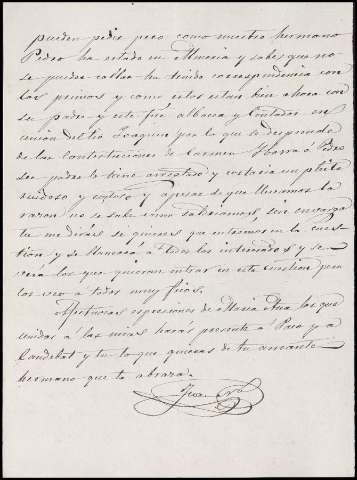 pueden pedir pero como nuestro hermano
Pedro ha estado en Almeria y sabes que no
se puede callar ha tenido correspondencia con
los primos y como estos estan bien ahora con
su padre y este fué albacea y Contador en
union del tio Joaquin por lo que se desprende
de las Contestaciones de Carmen Ybarra á Pedro
su padre lo tiene arrestado y costaria un pleito
ruidoso y costoso y apesar de que llevamos la
razon no se sabe como saldriamos, 
tu me dirás si quieres que entremos en la cues
tion y se llamará á todos los interesados y se
verá los que quieran entrar en esta cuestion pero
los veo á todos muy frios.
Afectuosas espresiones de Maria Ana las que
unidas á las mias harás presente á Paco y a
Candelas y tu lo que quieras de tu amante
hermano que te abraza.